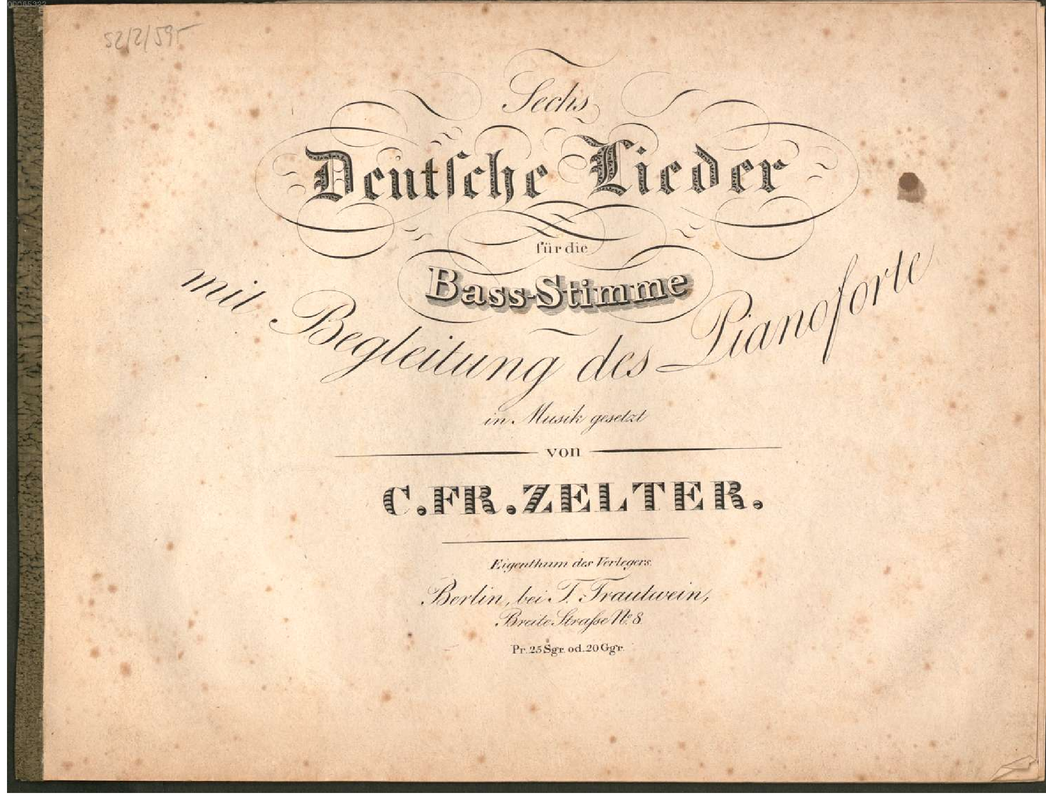 52/2/595
Sechs
Deutſche Lieder
für die
Bass-Stimme
mit Begleitung des Pianoforte
in Musik gesetzt
von
C. FR. ZELTER.
Eigenthum des Verlegers.
Berlin, bei T. Trautwein,
Breite Straſse No. 8.
Pr. 25 Sgr. od. 20 Ggr.